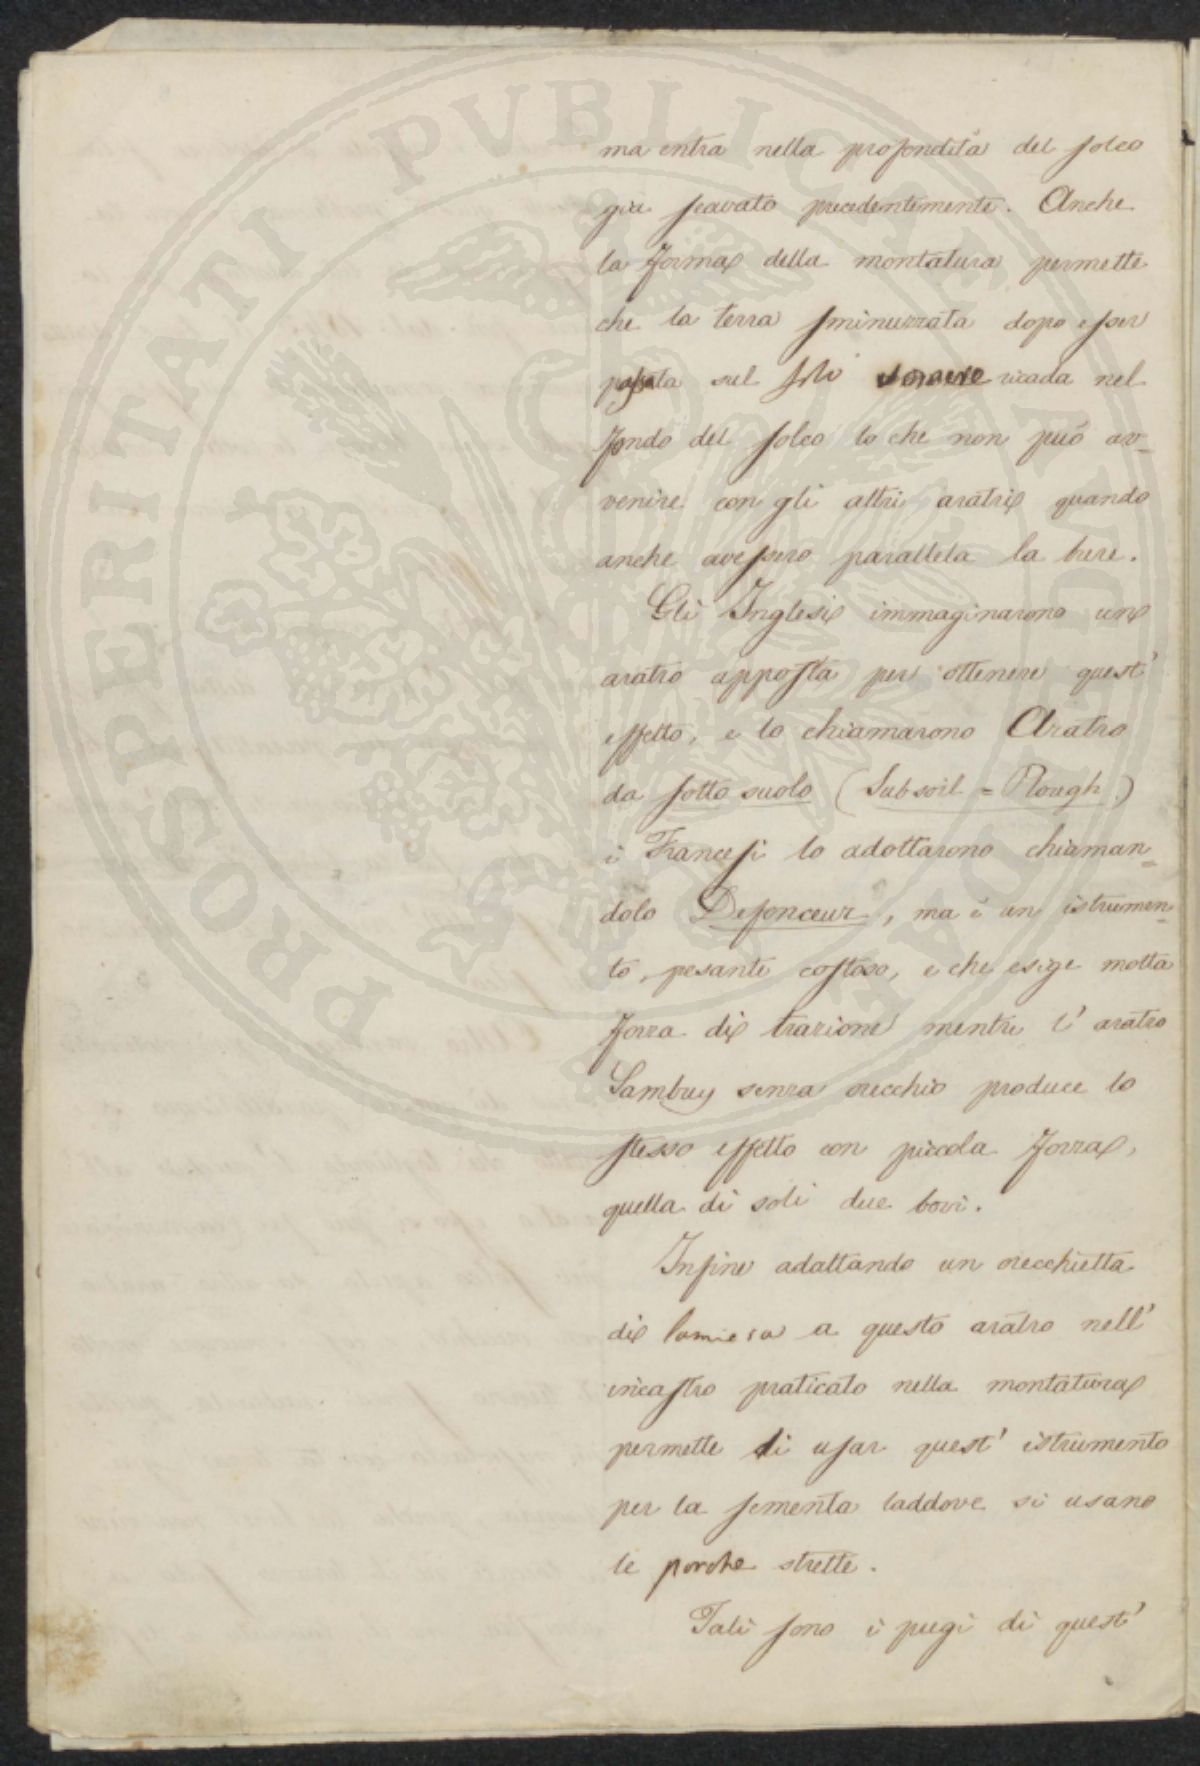 PROSPERITATI PUBLICAE AUGENDAE
ma entra nella profondità del solco
gia scavato precedentemente. Anche
la forma della montatura permette
che la terra sminuzzata dopo esser
passata sul ricada nel
fondo del solco lo che non può av-
venire con gli altri aratri quando
anche avessero parallela la bure.
Gli Inglesi immaginarono un
aratro apposta per ottenere quest'
effetto, e lo chiamarono Aratro
da sotto suolo (Subsoil = Plough)
i Francesi lo adottarono chiaman=
dolo Defonceur, ma è un istrumen=
to, pesante costoso, e che esige molta
forza di trazione mentre l'aratro
Sambuy senza orecchio produce lo
stesso effetto con piccola forza,
quella di soli due bovi.
Infine adattando un orecchietta
di lamiera a questo aratro nell'
incastro praticato nella montatura
permette di usar quest' istrumento
per la sementa laddove si usano
le porche strette.
Tali sono i pregi di quest'